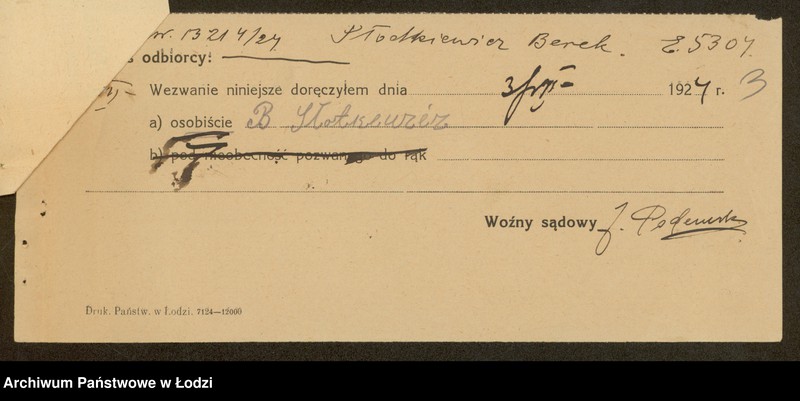 nr. 13214/24 Słodkiewicz Berek. Z. 5304.
odbiorcy:
Wezwanie niniejsze doręczyłem dnia 1924 r. 3
a) osobiście B Słotkiewicz
b) pod nieobecność pozwanego do rąk
Woźny sądowy J.
Druk. Państw. w Łodzi. 7124—12000
Archiwum Państwowe w Łodzi